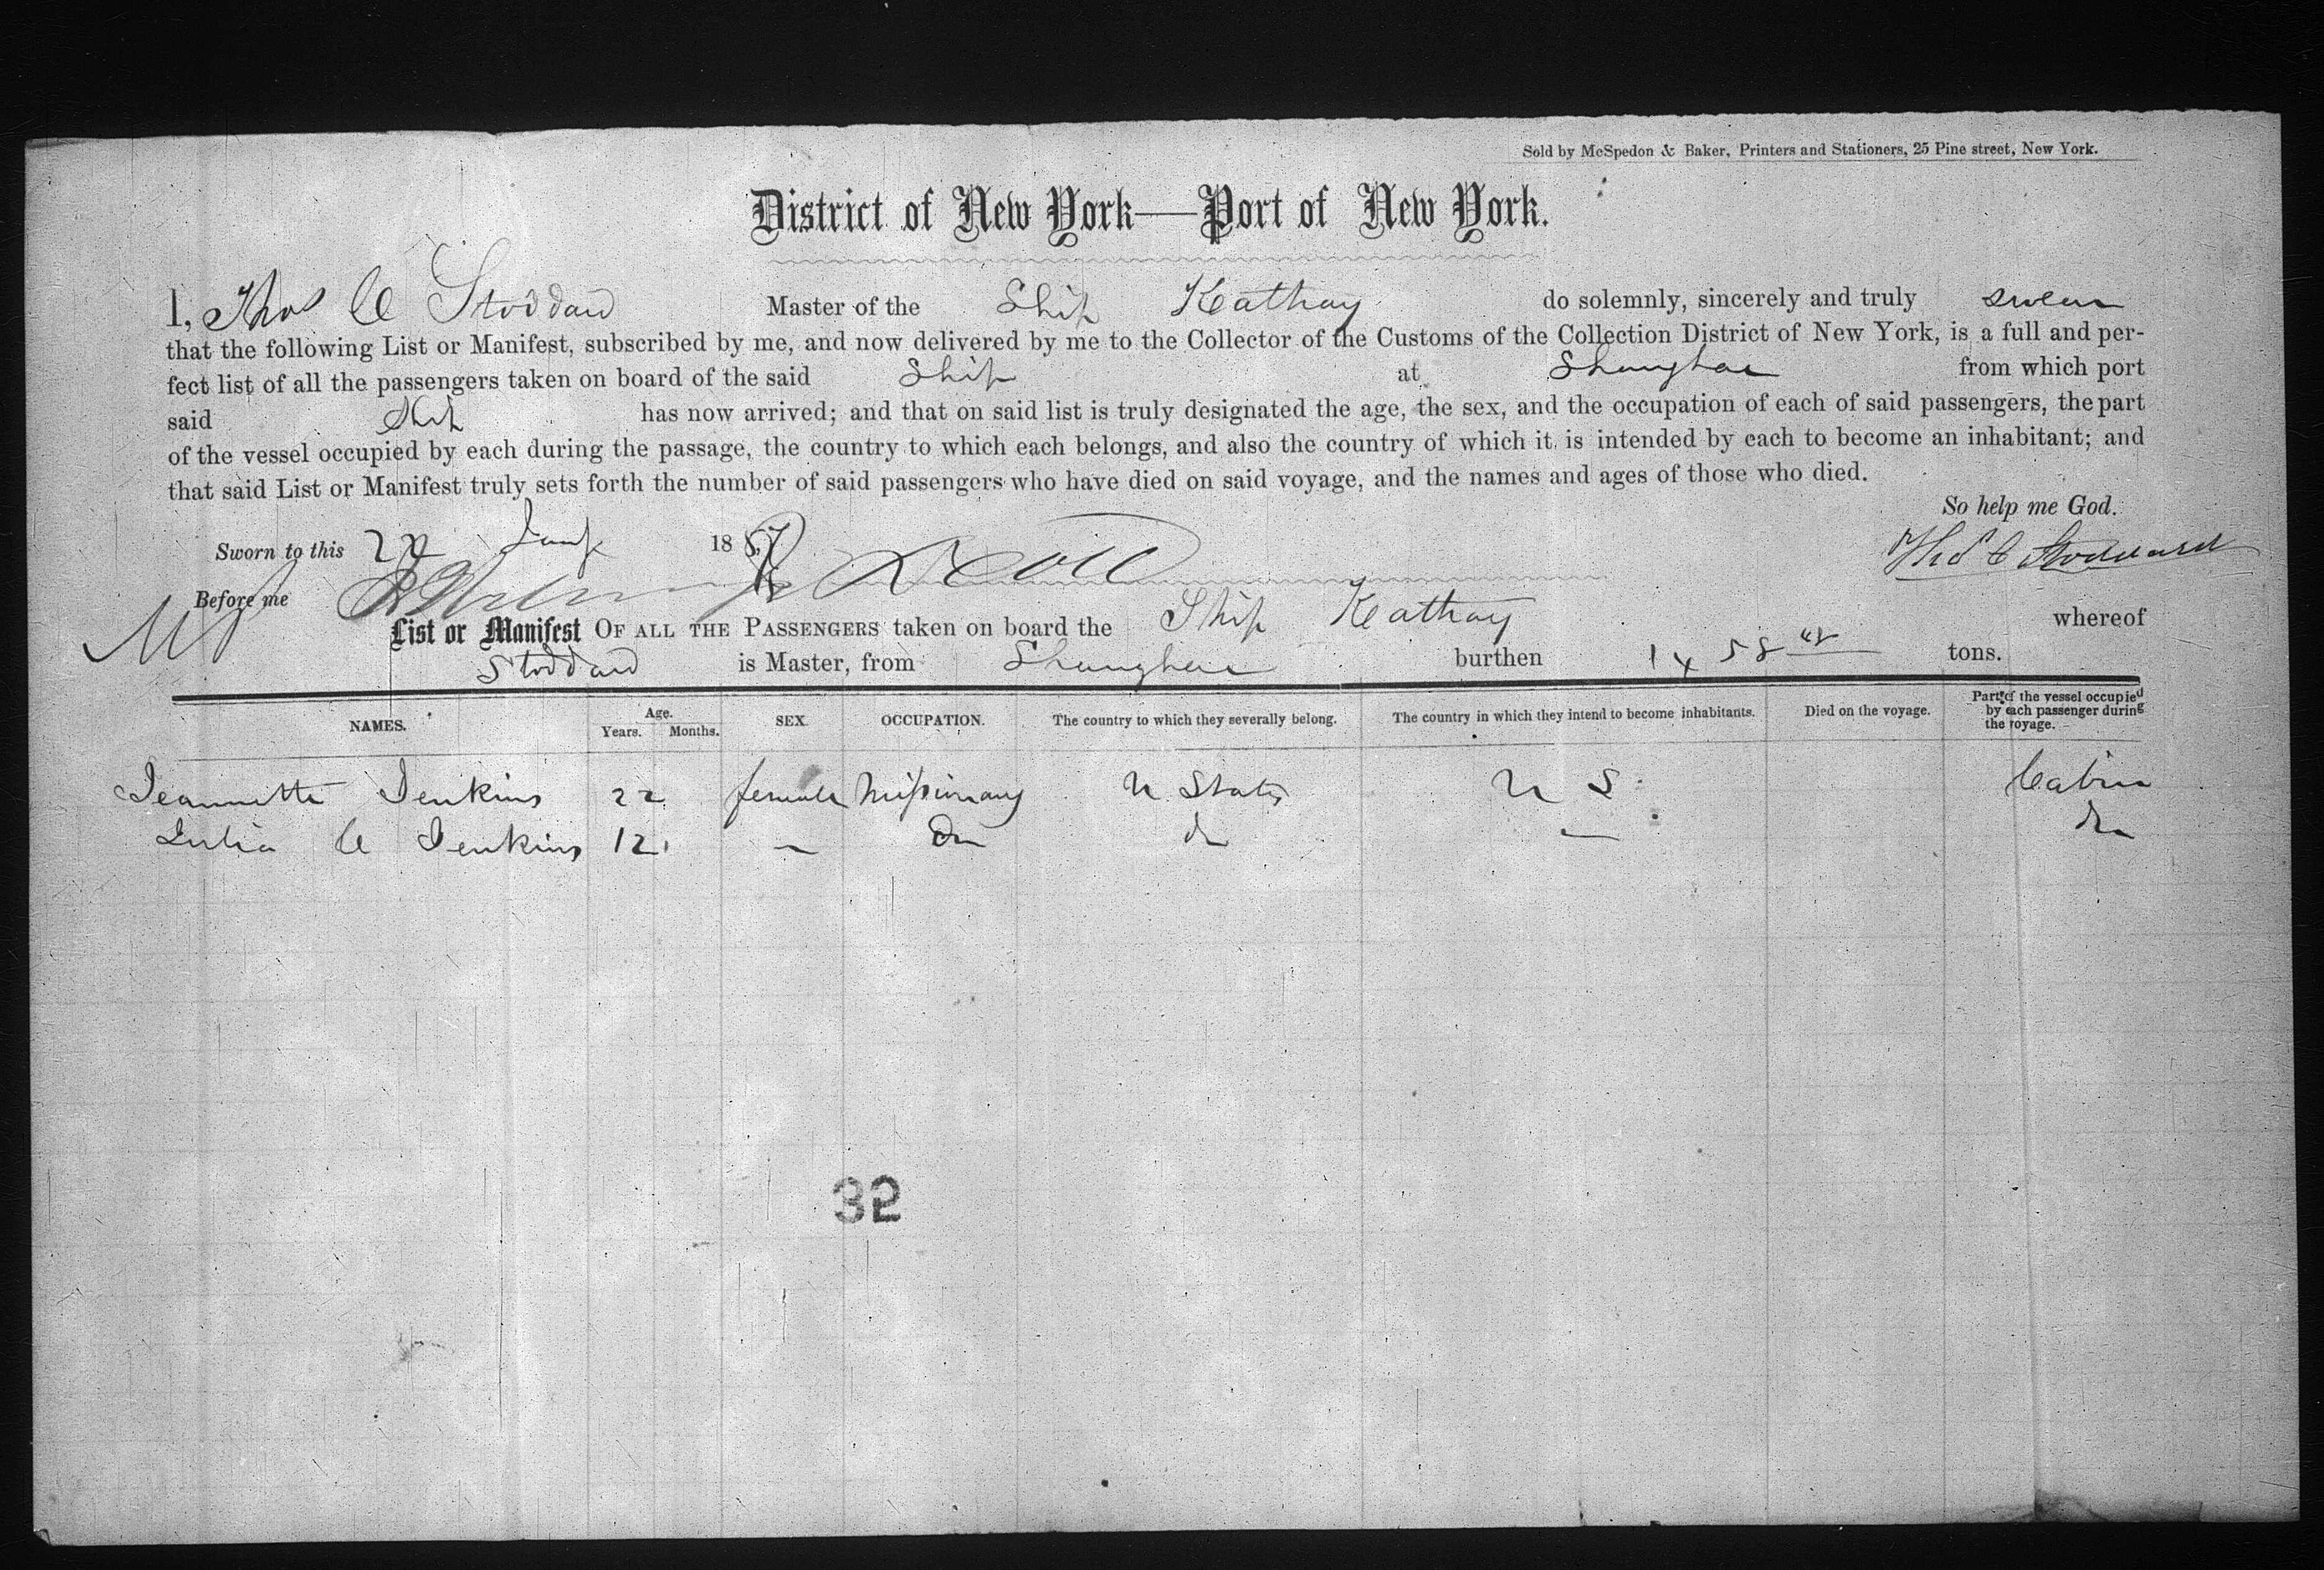 Sold by McSpedon & Baker, Printers and Stationers, 25 Pine street, New York.
District of New York—Port of New York.
I, Thos C Stoddard Master of the Ship Kathay do solemnly, sincerely and truly swear
that the following List or Manifest, subscribed by me, and now delivered by me to the Collector of the Customs of the Collection District of New York, is a full and per-
fect list of all the passengers taken on board of the said Ship at Shanghae from which port
said Ship has now arrived; and that on said list is truly designated the age, the sex, and the occupation of each of said passengers, the part
of the vessel occupied by each during the passage, the country to which each belongs, and also the country of which it is intended by each to become an inhabitant; and
that said List or Manifest truly sets forth the number of said passengers who have died on said voyage, and the names and ages of those who died.
So help me God.
Sworn to this 22 Jany 1857 Thos C Stoddard
Before me
List or Manifest OF ALL THE PASSENGERS taken on board the Ship Kathay whereof
Stoddard is Master, from Shanghae burthen 1458 tons.
NAMES. Age. Years. Months. SEX. OCCUPATION. The country to which they severally belong. The country in which they intend to become inhabitants. Died on the voyage. Part of the vessel occupied by each passenger during the voyage.
Jeannette Jenkins 22 female Missionary U. States U S Cabin
Julia C Jenkins 12 — Do do — do
32